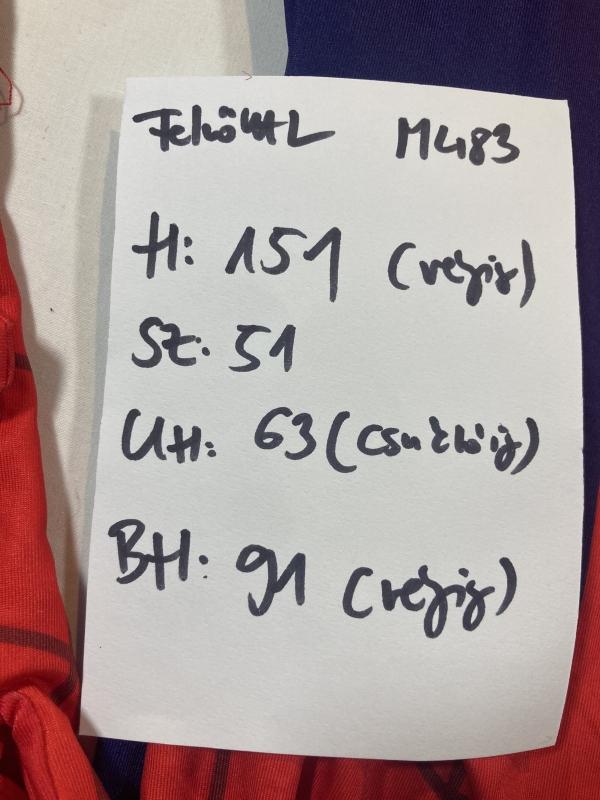 Felnőtt L M483
H: 151 (végig)
SZ: 51
UH: 63 (csuklóig)
BH: 91 (végig)